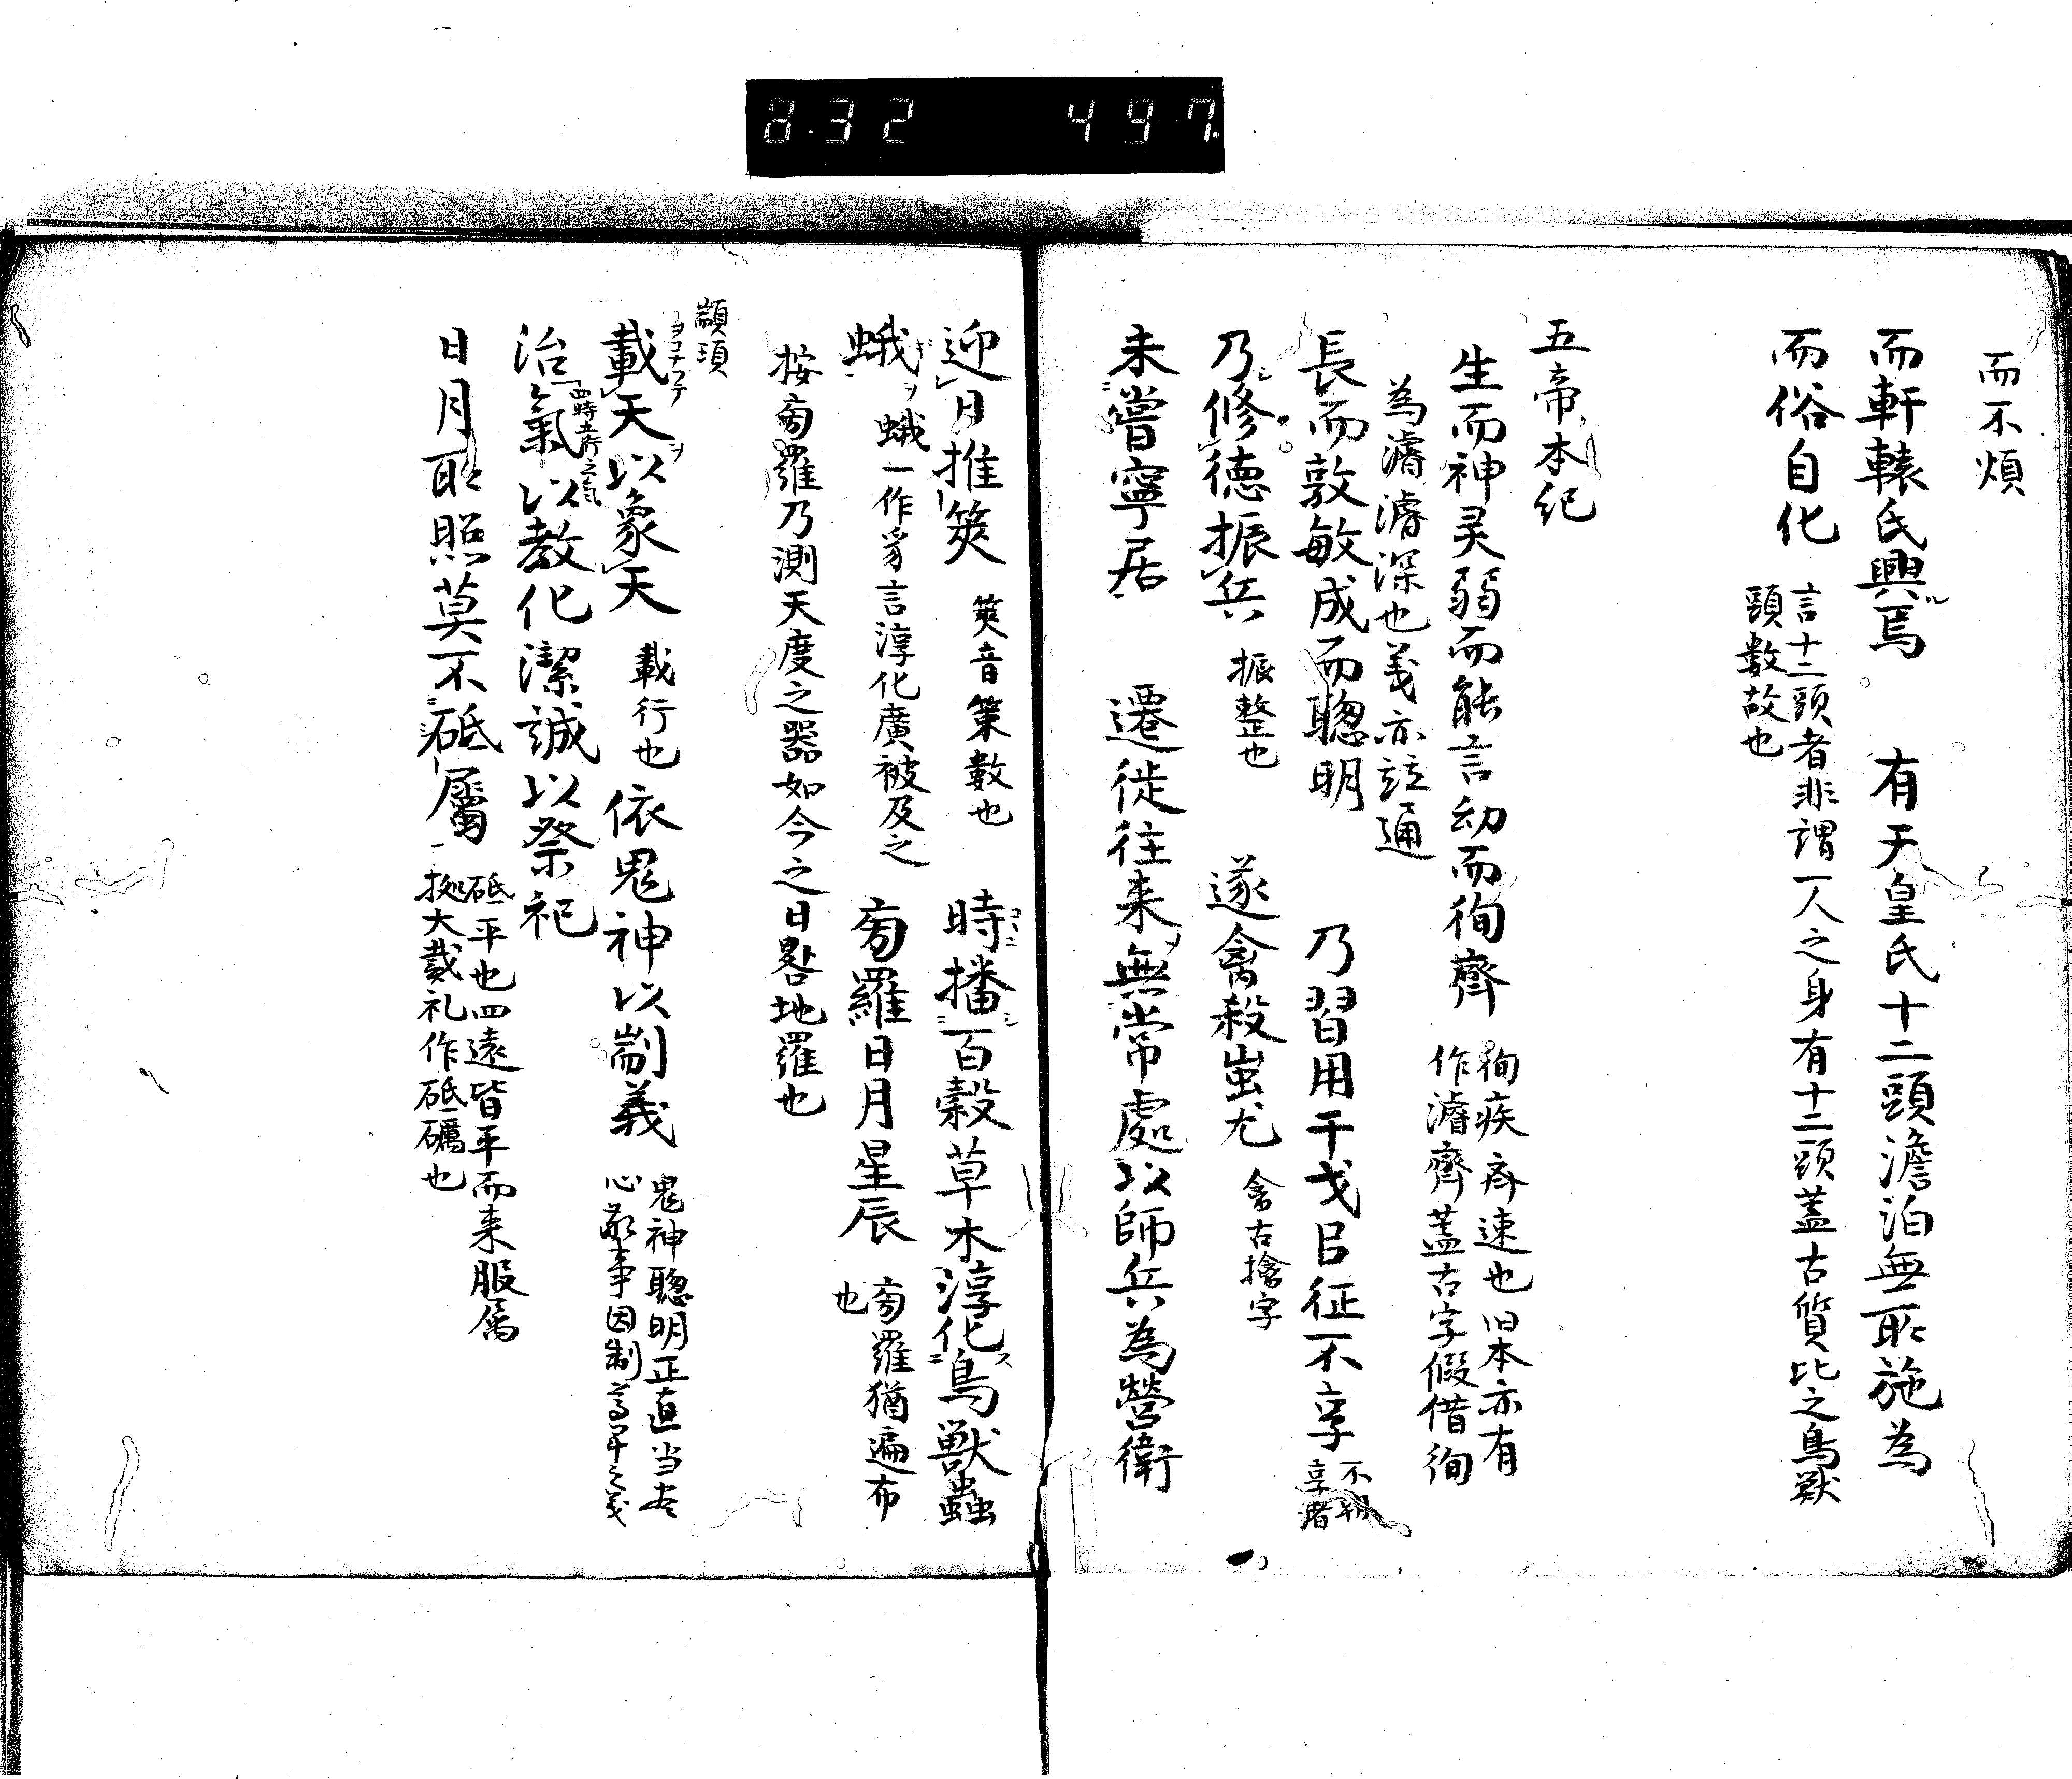 8.32 497.
而不煩
而軒轅氏興焉 有天皇氏十二頭澹泊無所施為
而俗自化 言十二頭者非謂一人之身有十二頭蓋古質比之鳥獣
頭数故也
五帝本紀
生而神灵弱而能言幼而徇齊 徇疾斉速也旧本亦有
作濬齊蓋古字假借徇
為濬濬深也義亦並通
長而敦敏成而聰明 乃習用干戈㠯征不享 不朝
享者
乃修徳振兵 振整也 遂禽殺蚩尤 禽古擒字
未嘗寧居 遷徙往来無常處以師兵為營衛
迎日推筴 筴音策數也 時播百穀草木淳化鳥獸蟲
蛾 蛾一作豸言淳化廣被及之 旁羅日月星辰 旁羅猶遍布
也
按旁羅乃測天度之器如今之日晷地羅也
顓頊
載天以象天 載行也 依鬼神以制義 鬼神聰明正直当尽
心敬事因制尊卑之義
治氣以教化 四時五行之气 潔誠以祭祀
日月所照莫不砥屬 砥平也四遠皆平而来服属
拠大戴礼作砥礪也